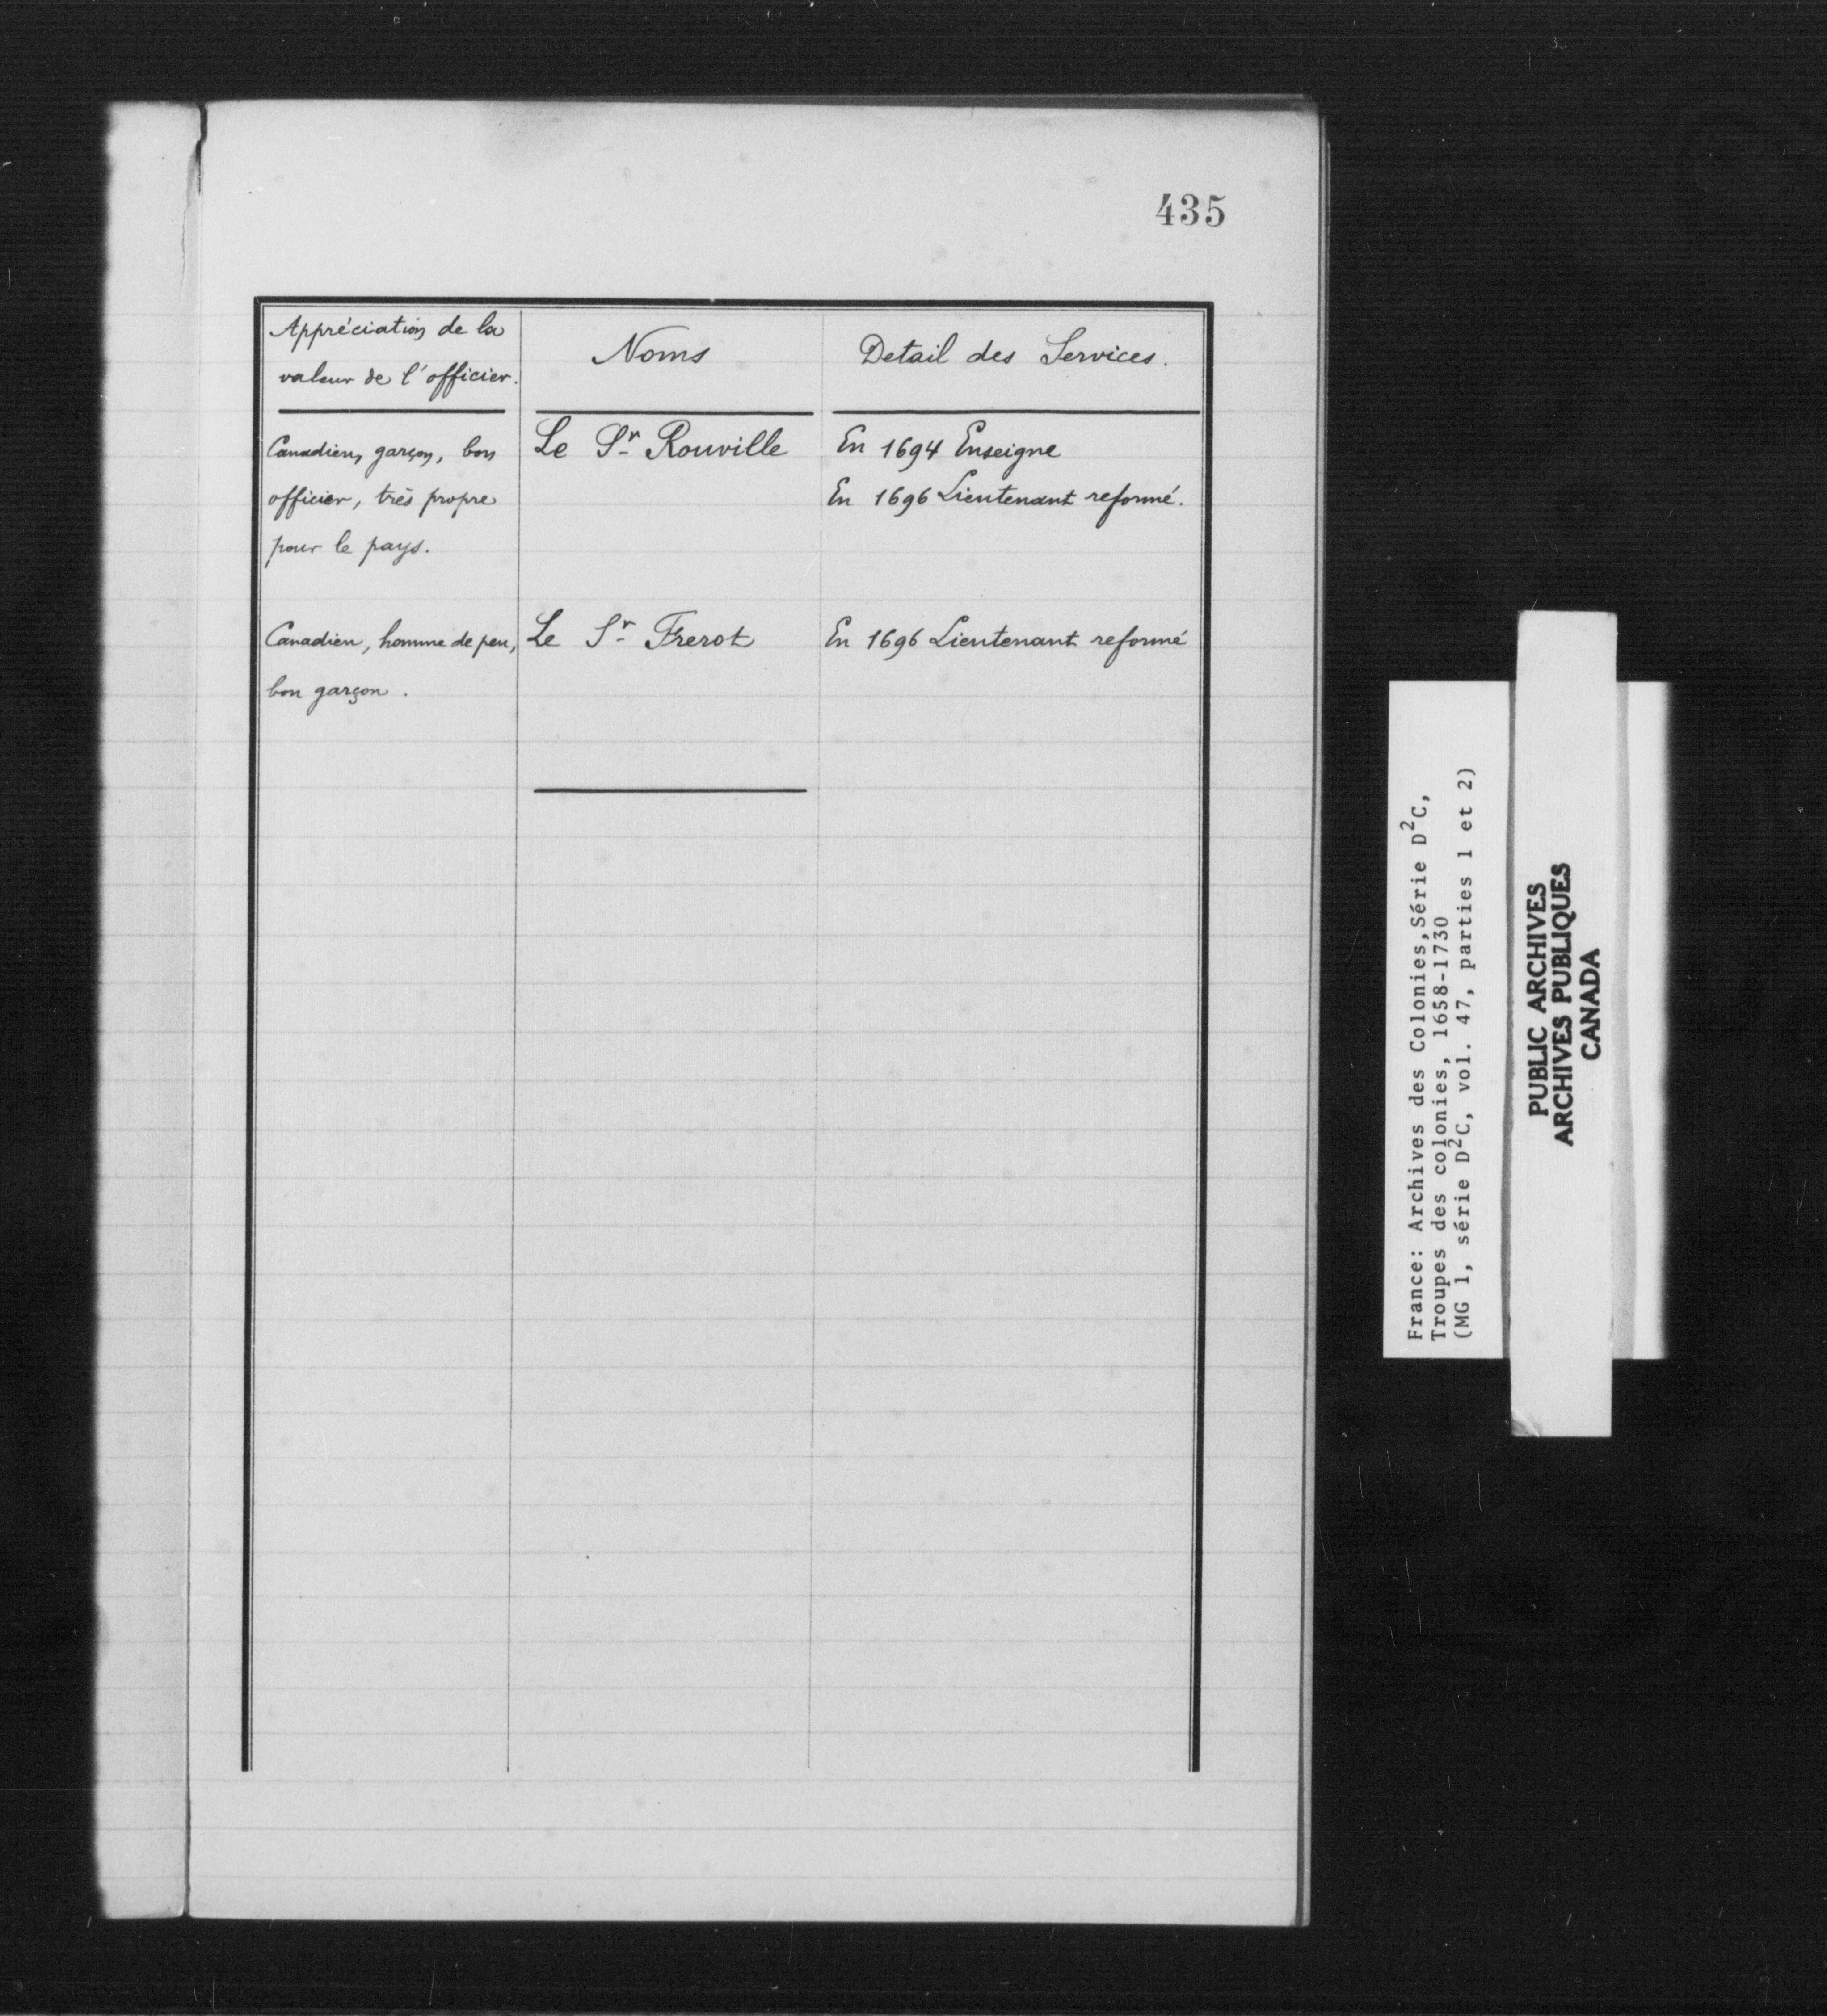 435
Appréciation de la
valeur de l'officier.
Noms
Detail des Services.
Canadien, garçon, bon
officier, très propre
pour le pays.
Le Sr Rouville
En 1694 Enseigne
En 1696 Lieutenant reformé.
Canadien, homme de peu,
bon garçon.
Le Sr Frerot
En 1696 Lieutenant reformé
France: Archives des Colonies, Série D²C,
Troupes des colonies, 1658-1730
(MG 1, série D²C, vol. 47, parties 1 et 2)
PUBLIC ARCHIVES
ARCHIVES PUBLIQUES
CANADA